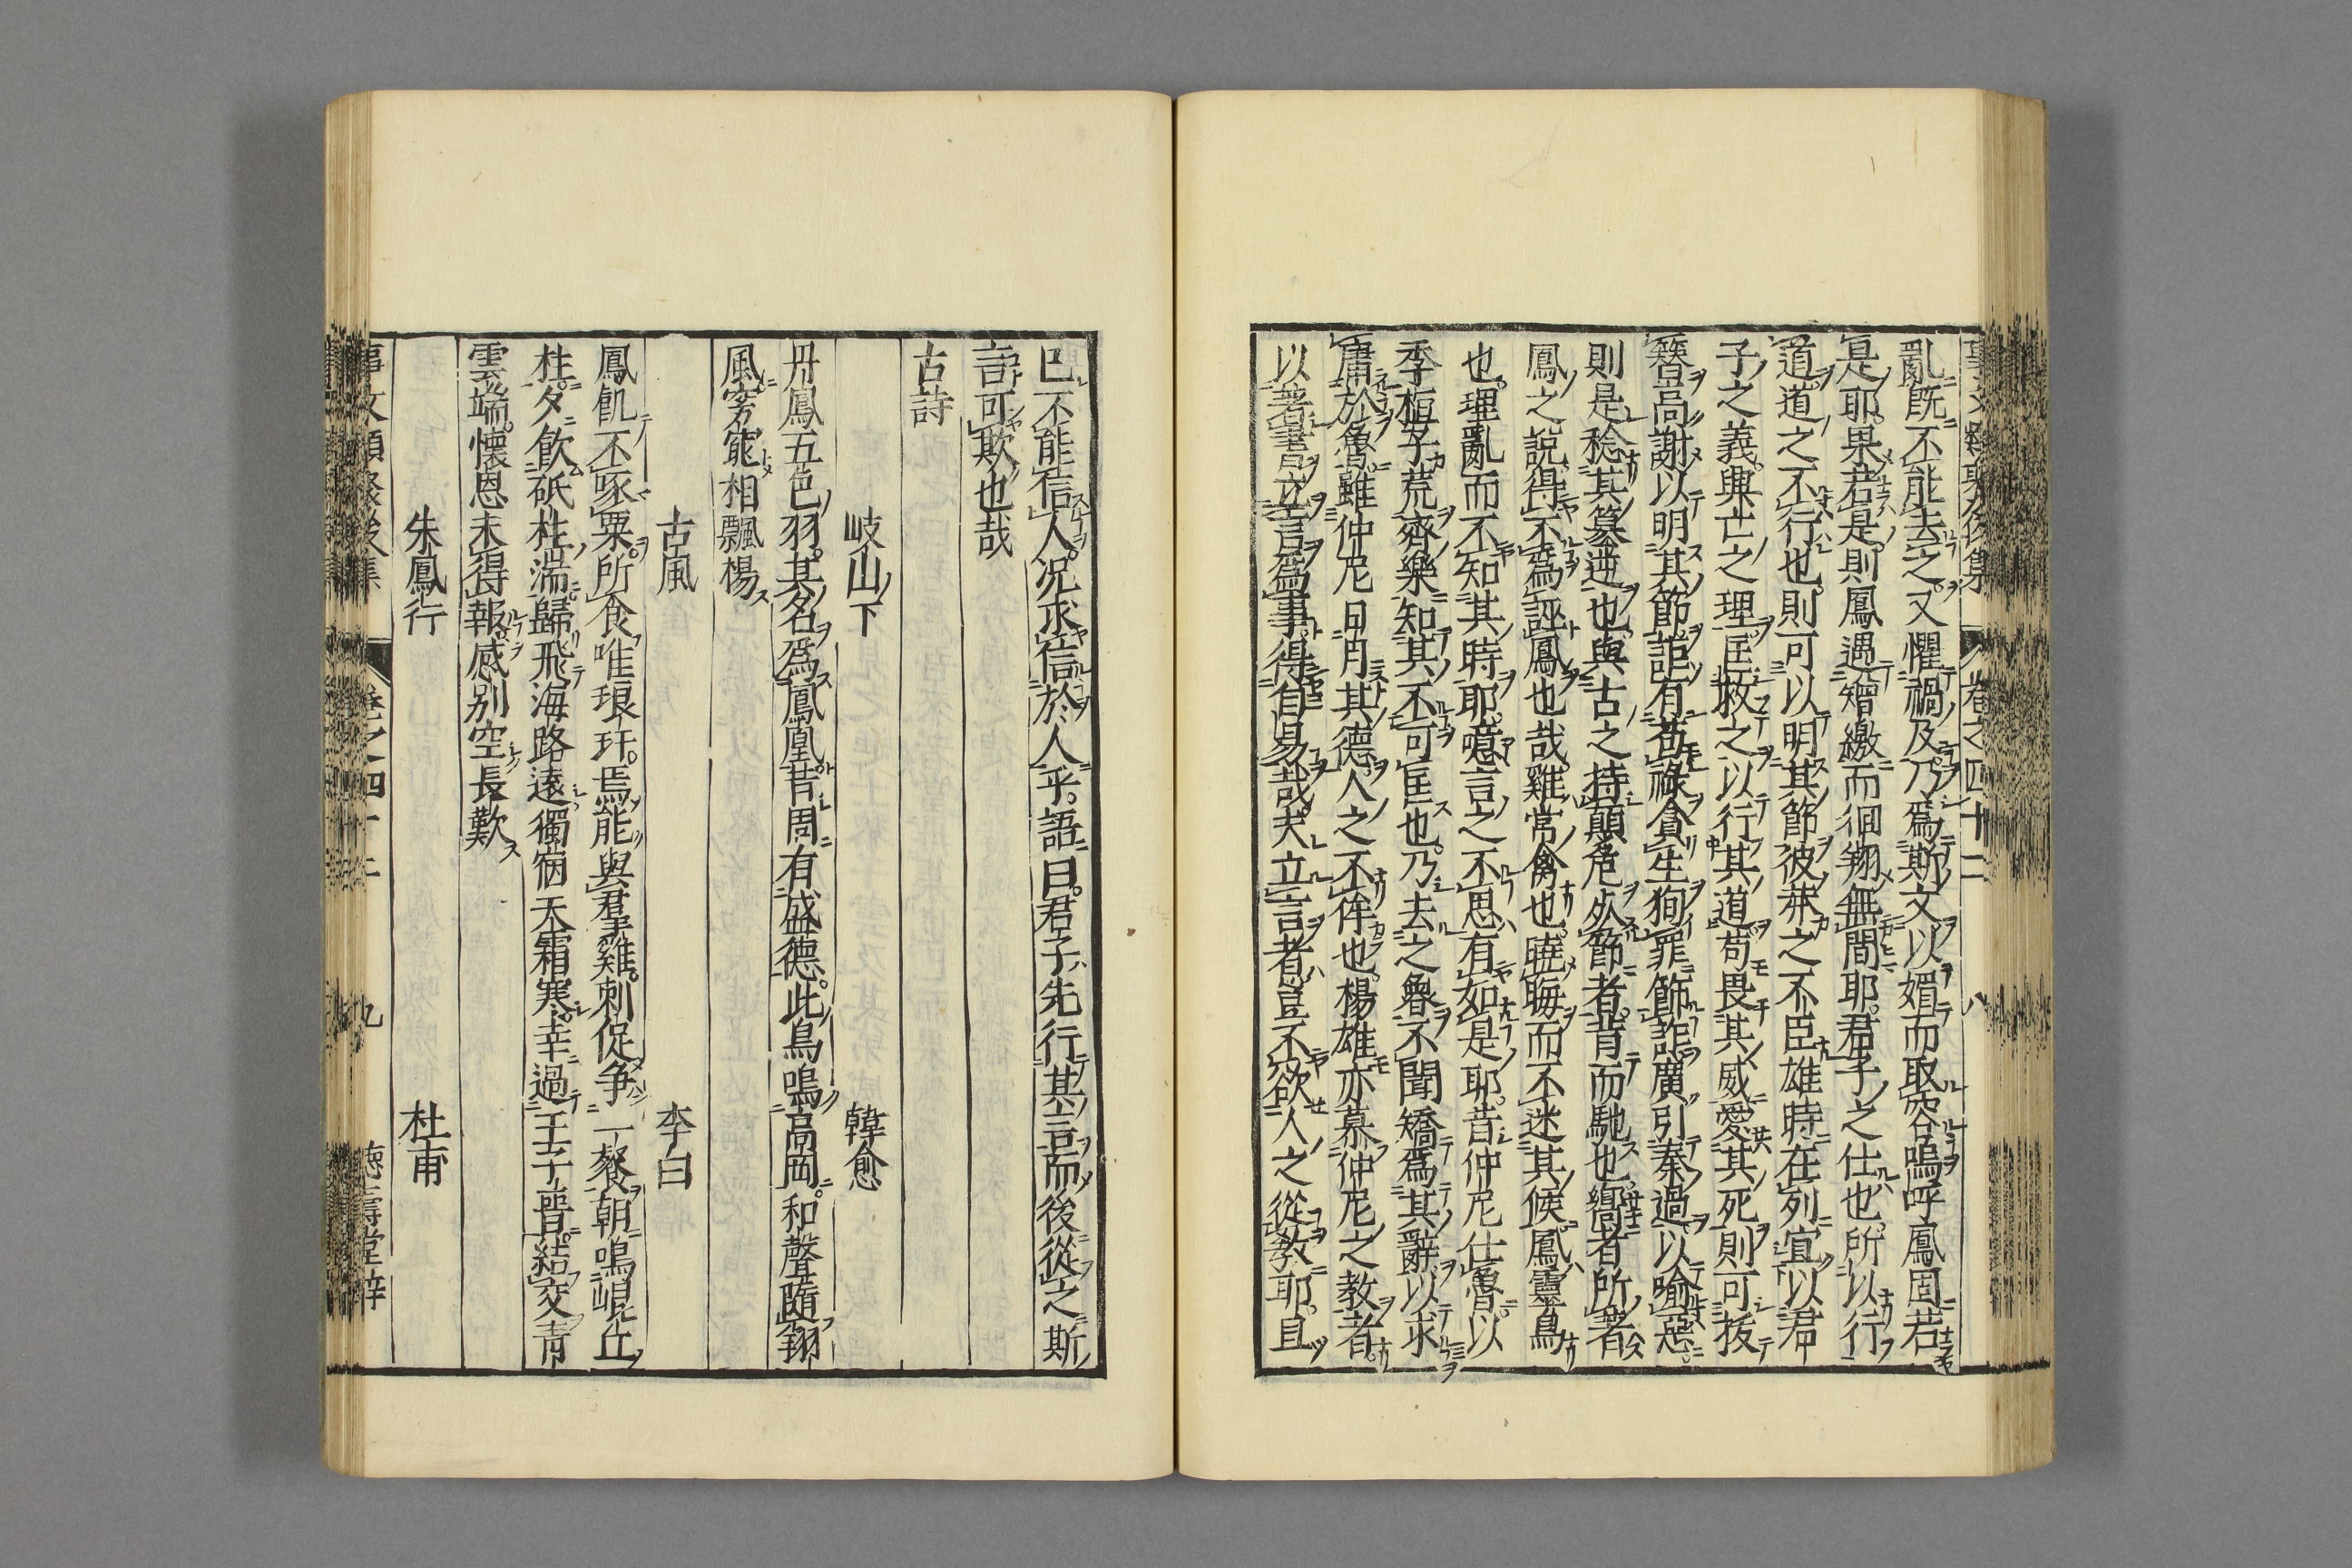 亂既不能去之又懼禍及乃爲斯文以媚而取容嗚呼鳳固若
是耶果若是則鳳遇矰繳而徊翔無間耶君子之仕也所以行
道道之不行也則可以明其節彼莽之不臣雄時在列宜以君
子之義興亡之理匡救之以行其道苟畏其威愛其死則可投
簪高謝以明其節詎有苟祿貪生狥罪飾詐廣引秦過以喻惡
則是稔其篡逆也與古之持顛危仗節者背而馳也嚮者所著
鳳之說得不爲誣鳳也哉雞常禽也曉晦而不迷其候鳳靈鳥
也理亂而不知其時耶噫言之不思有如是耶昔仲尼仕魯以
季桓子荒齊樂知其不可匡也乃去之魯不聞矯爲其辭以求
庸於魯雖仲尼日月其德人之不侔也楊雄亦慕仲尼之教者
以著書立言爲事得自易哉夫立言者豈不欲人之從教耶且
巳不能信人况求信於人乎語曰君子先行其言而後從之斯
言可欺也哉
古詩
岐山下 韓愈
丹鳳五色羽其名爲鳳凰昔周有盛德此鳥鳴高岡和聲隨翔
風窈窕相飄楊
古風 李白
鳳飢不啄粟所食唯琅玕焉能與羣雞刺促争一餐朝鳴崐丘
柱夕飲砥柱湍歸飛海路遠獨宿天霜寒幸遇王子晉結交青
雲端懷恩未得報感别空長歎
朱鳳行 杜甫
卷之四十二 九